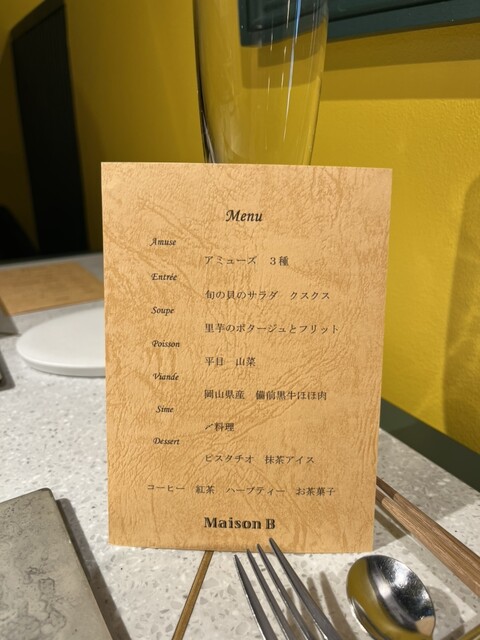 Menu
Amuse
アミューズ　３種
Entrée
旬の貝のサラダ　クスクス
Soupe
里芋のポタージュとフリット
Poisson
平目　山菜
Viande
岡山県産　備前黒牛ほほ肉
Sime
〆料理
Dessert
ピスタチオ　抹茶アイス
コーヒー　紅茶　ハーブティー　お茶菓子
Maison B